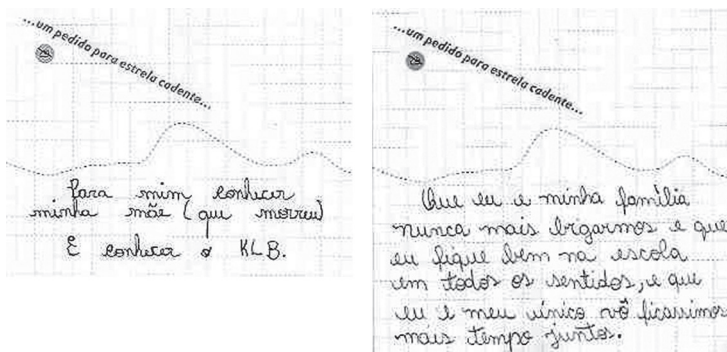 ...um pedido para estrela cadente...
Para mim conhecer
minha mãe (que morreu)
E conhecer o KLB.
...um pedido para estrela cadente...
Que eu e minha família
nunca mais brigarmos e que
eu fique bem na escola
em todos os sentidos, e que
eu e meu único vô ficassimos
mais tempo juntos.